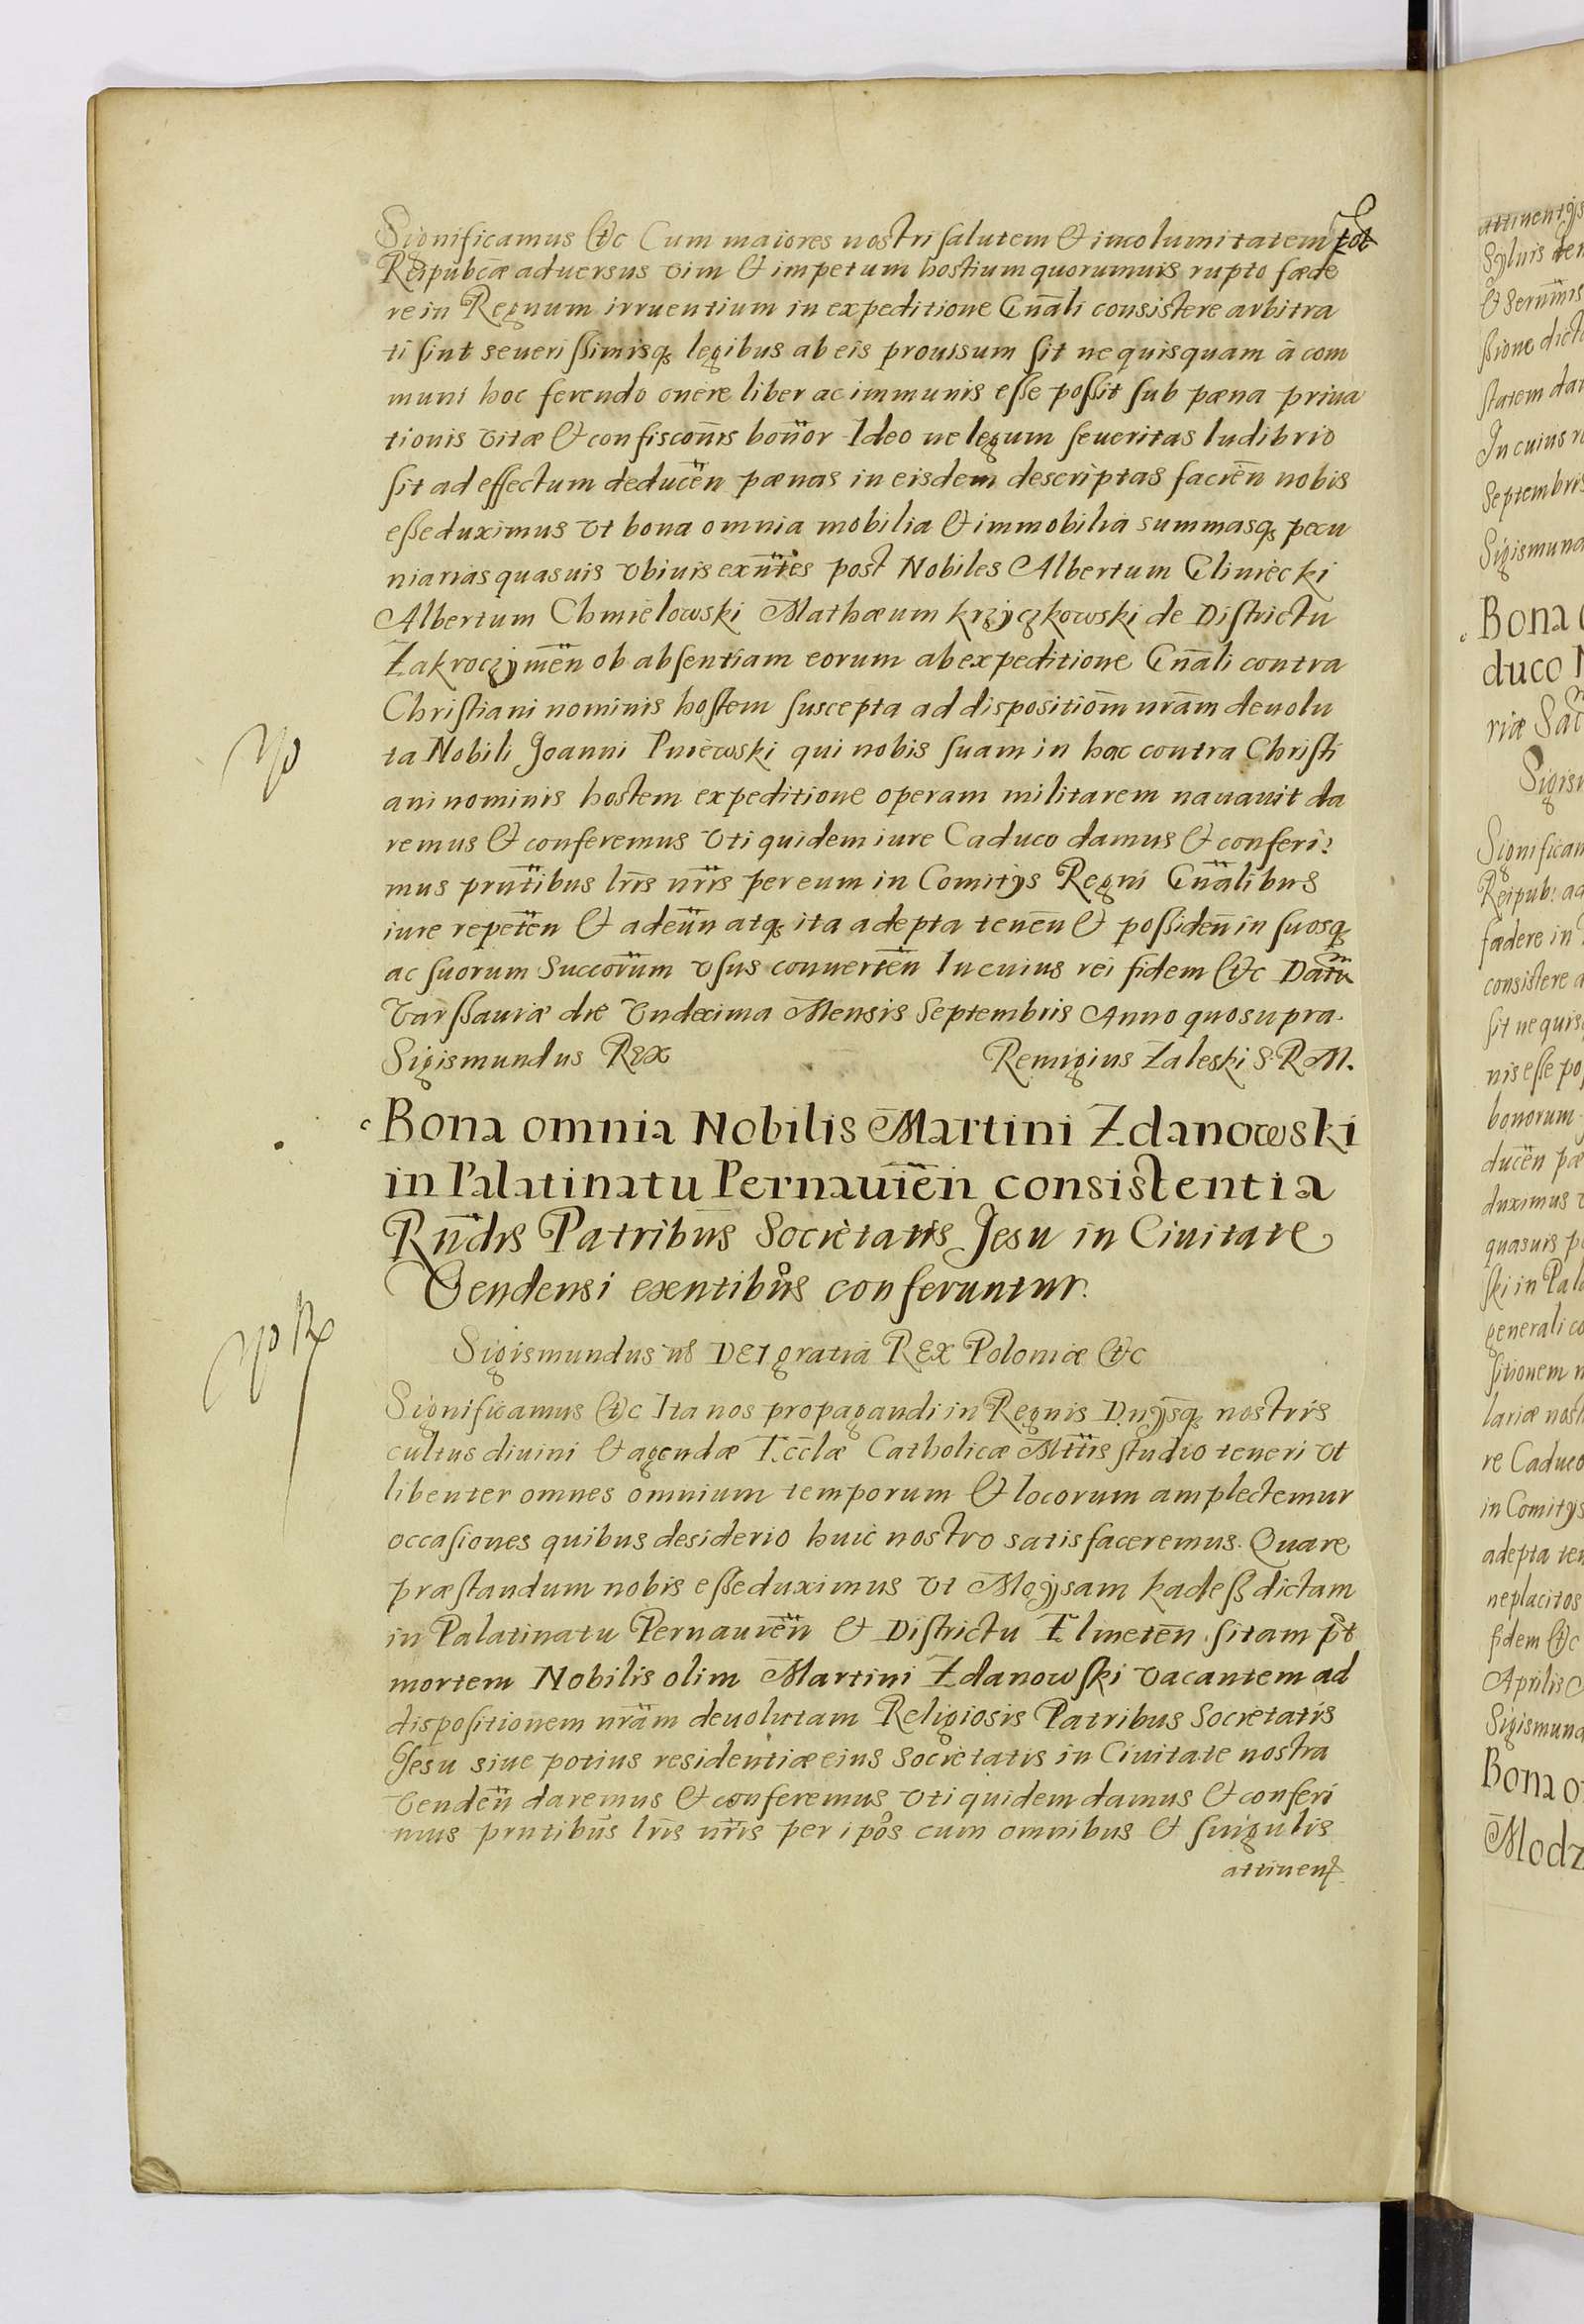 Significamus &c Cum maiores nostri salutem & incolumitatem tot
Reipubcæ aduersus vim & impetum hostium quorumuis rupto fæde
re in Regnum irruentium in expeditione Gnāli consistere arbitra
ti sint seuerißimisq legibus ab eis prouisum sit ne quisquam à com
muni hoc ferendo onere liber ac immunis eße poßit sub pæna priua
tionis vitæ & confisconis bonor Ideo ne legum seueritas ludibrio
sit ad effectum deducen pænas in eisdem descriptas facien nobis
eße duximus vt bona omnia mobilia & immobilia summasq pecu
niarias quasuis vbiuis exntes post Nobiles Albertum Gliniecki
Albertum Chmielowski Mathæum Krzyczkowski de Districtu
Zakroczymen ob absentiam eorum ab expeditione Gnāli contra
Christiani nominis hostem suscepta ad dispositiom nram deuolu
ta Nobili Joanni Pniewski qui nobis suam in hac contra Christi
ani nominis hostem expeditione operam militarem nauauit da
remus & conferemus vti quidem iure Caduco damus & conferi:
mus prntibus lris nris per eum in Comitijs Regni Gnalibus
iure repeten & adeun atq ita adepta tenen & poßiden in suosq
ac suorum Succorum vsus conuerten In cuius rei fidem &c Datu
Varßauiæ die Vndecima Mensis Septembris Anno quo supra.
Sigismundus REX Remigius Zaleski S. R. M.
Bona omnia Nobilis Martini Zdanowski
in Palatinatu Pernauien consistentia
Rndis Patribus Societatis Jesu in Ciuitate
Vendensi exentibus conferuntur.
Sigismundus 3us DEI gratia REX Poloniæ &c
Significamus &c Ita nos propagandi in Regnis Dnijsq nostris
cultus diuini & agendæ Ecclæ Catholicæ Mttis studio teneri vt
libenter omnes omnium temporum & locorum amplectemur
occasiones quibus desiderio huic nostro satisfaceremus. Quare
præstandum nobis eße duximus vt Moysam Kadeß dictam
in Palatinatu Pernauien & Districtu Elmeten sitam pt
mortem Nobilis olim Martini Zdanowski vacantem ad
dispositionem nram deuolutam Religiosis Patribus Societatis
Jesu siue potius residentiæ eius Societatis in Ciuitate nostra
Venden daremus & conferemus vti quidem damus & conferi
mus prntibus lris nris per ipos cum omnibus & singulis
attinen